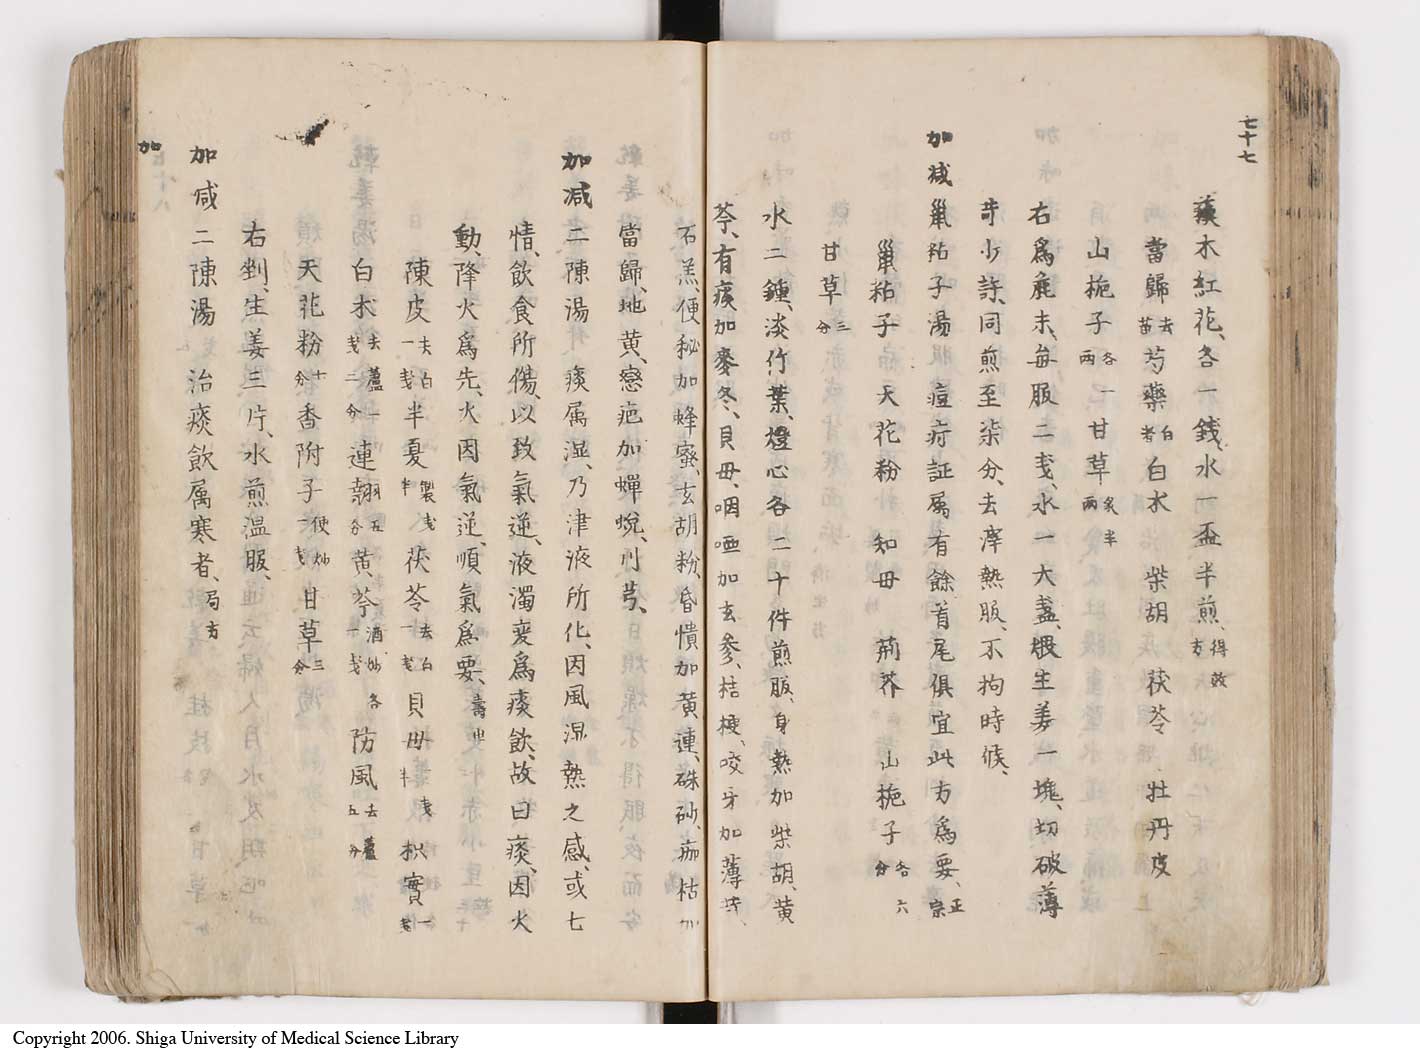 七十七
蘓木紅花、各一錢、水一盃半煎、得效方
當歸去苗芍藥白者白朮 柴胡 茯苓 牡丹皮
山梔子各一兩甘草炙半兩
右爲麁末、每服二戔、水一大盞、煨生姜一塊、切破薄
苛少許、同煎至柒分、去滓熱服、不拘時候、
加减䑕粘子湯 痘疹証属有餘、首尾俱宜此方爲要、正宗
䑕粘子 天花粉 知母 荊芥 山梔子各六分
甘草三分
水二鍾、淡竹葉、燈心各二十件煎服、身熱加柴胡、黄
芩、有痰加麥冬、貝母、咽啞加玄參、桔梗、咬牙加薄苛、
石羔、便秘加蜂蜜、玄胡粉、昏憒加黄連、硃砂、痂枯加
當歸、地黄、瘛疤加蟬蛻、川芎、
加减二陳湯 痰属湿、乃津液所化、因風湿熱之感、或七
情、飲食所傷、以致氣逆、液濁変爲痰飲、故曰痰、因火
動降火爲先、火因氣逆、順氣爲要、壽世
陳皮去白一戔半夏製半戔茯苓去白一戔貝母一戔半枳實一戔
白朮去蘆一戔二分連翹五分黄芩酒炒各一戔防風去蘆五分
天花粉十分香附子便炒一戔甘草三分
右剉、生姜三片、水煎温服、
加减二陳湯 治痰飲属寒者、局方
加
Copyright 2006. Shiga University of Medical Science Library